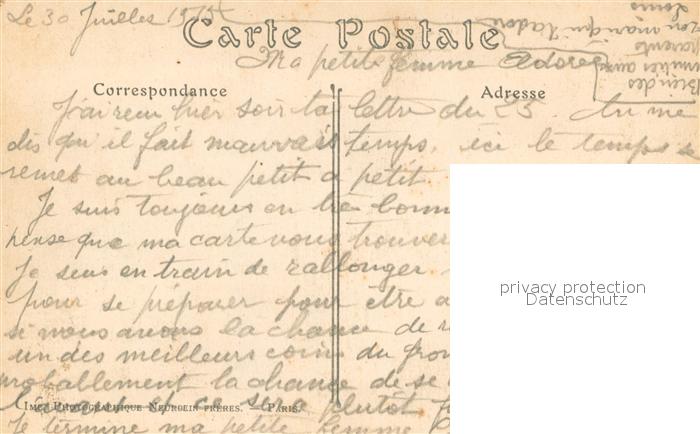 Le 30 Juilles 1915
Carte Postale
Ma petite femme Adorée
Bien des
parents
ton mari qui t'adore
Louis
Correspondance
Adresse
J'ai recu hier soir ta lettre du 25. tu me
dis qu'il fait mauvais temps, ici le temps se
remet au beau petit a petit
Je suis toujours en tre bonne
pense que ma carte vous trouver
Je suis en train de rallonger
pour se préparer pour être a
si nous avons la chance de r
un des meilleurs coin du fron
probablement la chance de se
et ce sera plutôt
IMP. PHOTOGRAPHIQUE NEURDEIN FRÈRES. PARIS.
Je termine ma petite femme
privacy protection
Datenschutz